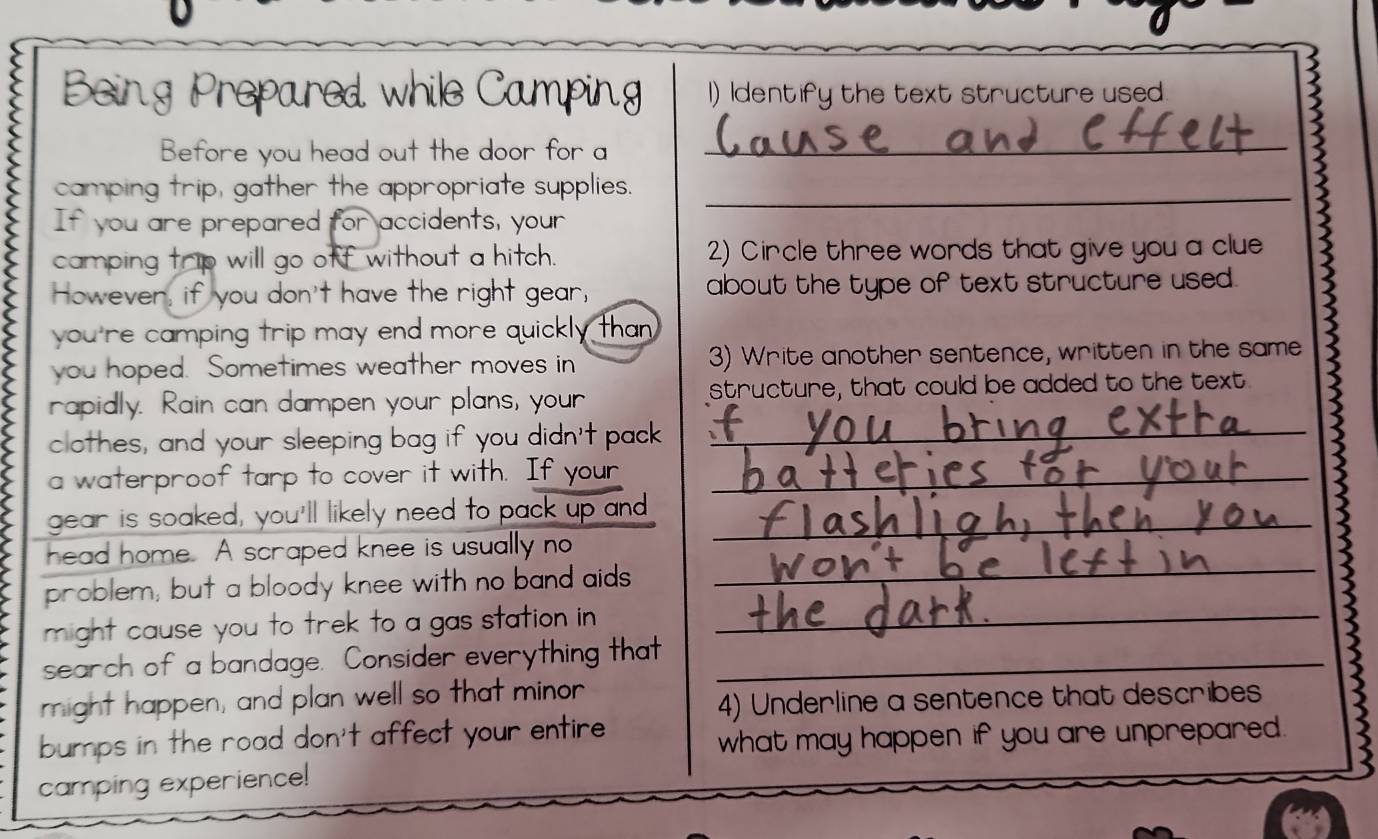 Being Prepared while Camping
Before you head out the door for a
camping trip, gather the appropriate supplies.
If you are prepared for accidents, your
camping trip will go off without a hitch.
However, if you don't have the right gear,
you're camping trip may end more quickly than
you hoped. Sometimes weather moves in
rapidly. Rain can dampen your plans, your
clothes, and your sleeping bag if you didn't pack
a waterproof tarp to cover it with. If your
gear is soaked, you'll likely need to pack up and
head home. A scraped knee is usually no
problem, but a bloody knee with no band aids
might cause you to trek to a gas station in
search of a bandage. Consider everything that
might happen, and plan well so that minor
bumps in the road don't affect your entire
camping experience!
1) Identify the text structure used.
Cause and effect
2) Circle three words that give you a clue
about the type of text structure used.
3) Write another sentence, written in the same
structure, that could be added to the text.
if you bring extra
batteries for your
flashligh, then you
won't be left in
the dark.
4) Underline a sentence that describes
what may happen if you are unprepared.